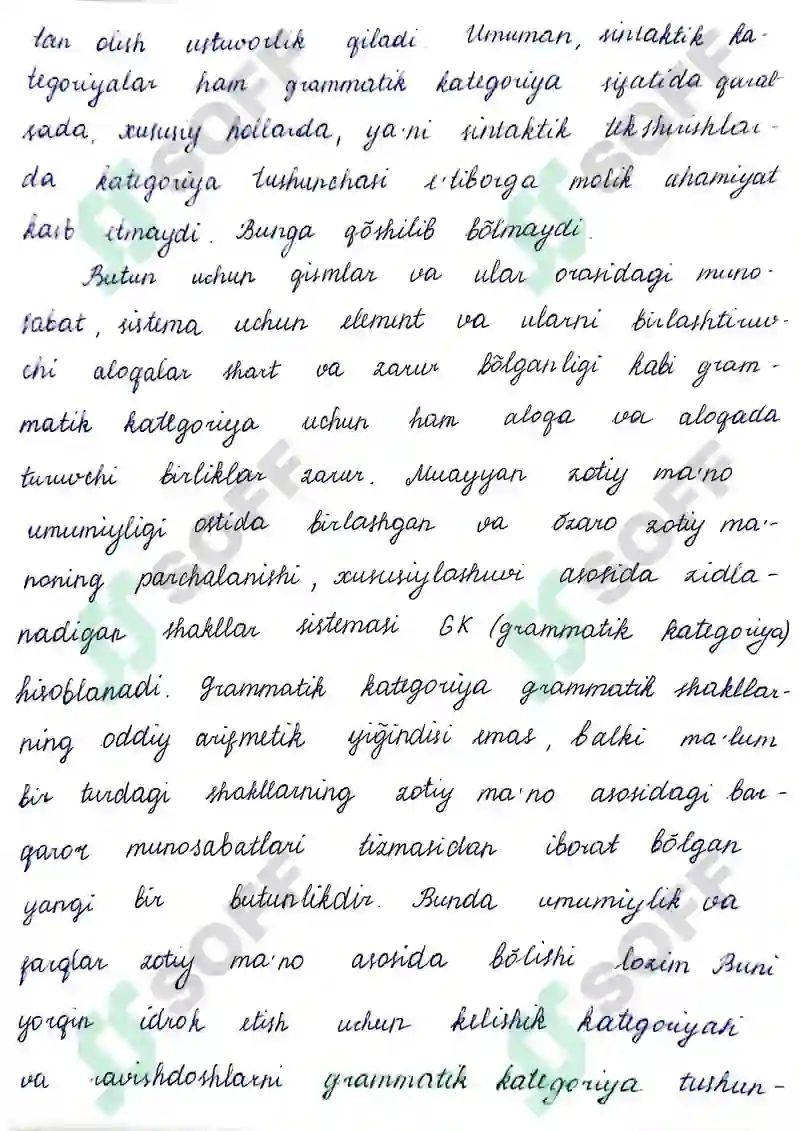 tan olish ustuvorlik qiladi. Umuman, sintaktik ka-
tegoriyalar ham grammatik kategoriya sifatida qaral-
sada, xususiy hollarda, ya'ni sintaktik tekshirishlar-
da kategoriya tushunchasi e'tiborga molik ahamiyat
kasb etmaydi. Bunga qõshilib bõlmaydi.
Butun uchun qismlar va ular orasidagi muno-
sabat, sistema uchun element va ularni birlashtiruv-
chi aloqalar shart va zarur bõlganligi kabi gram-
matik kategoriya uchun ham aloqa va aloqada
turuvchi birliklar zarur. Muayyan zotiy ma'no
umumiyligi ostida birlashgan va õzaro zotiy ma'-
noning parchalanishi, xususiylashuvi asosida zidla-
nadigan shakllar sistemasi GK (grammatik kategoriya)
hisoblanadi. Grammatik kategoriya grammatik shakllar-
ning oddiy arifmetik yiğindisi emas, balki ma'lum
bir turdagi shakllarning zotiy ma'no asosidagi bar-
qaror munosabatlari tizmasidan iborat bõlgan
yangi bir butunlikdir. Bunda umumiylik va
farqlar zotiy ma'no asosida bõlishi lozim Buni
yorqin idrok etish uchun kelishik kategoriyasi
va ravishdoshlarni grammatik kategoriya tushun-
SOFF
SOFF
SOFF
SOFF
SOFF
SOFF